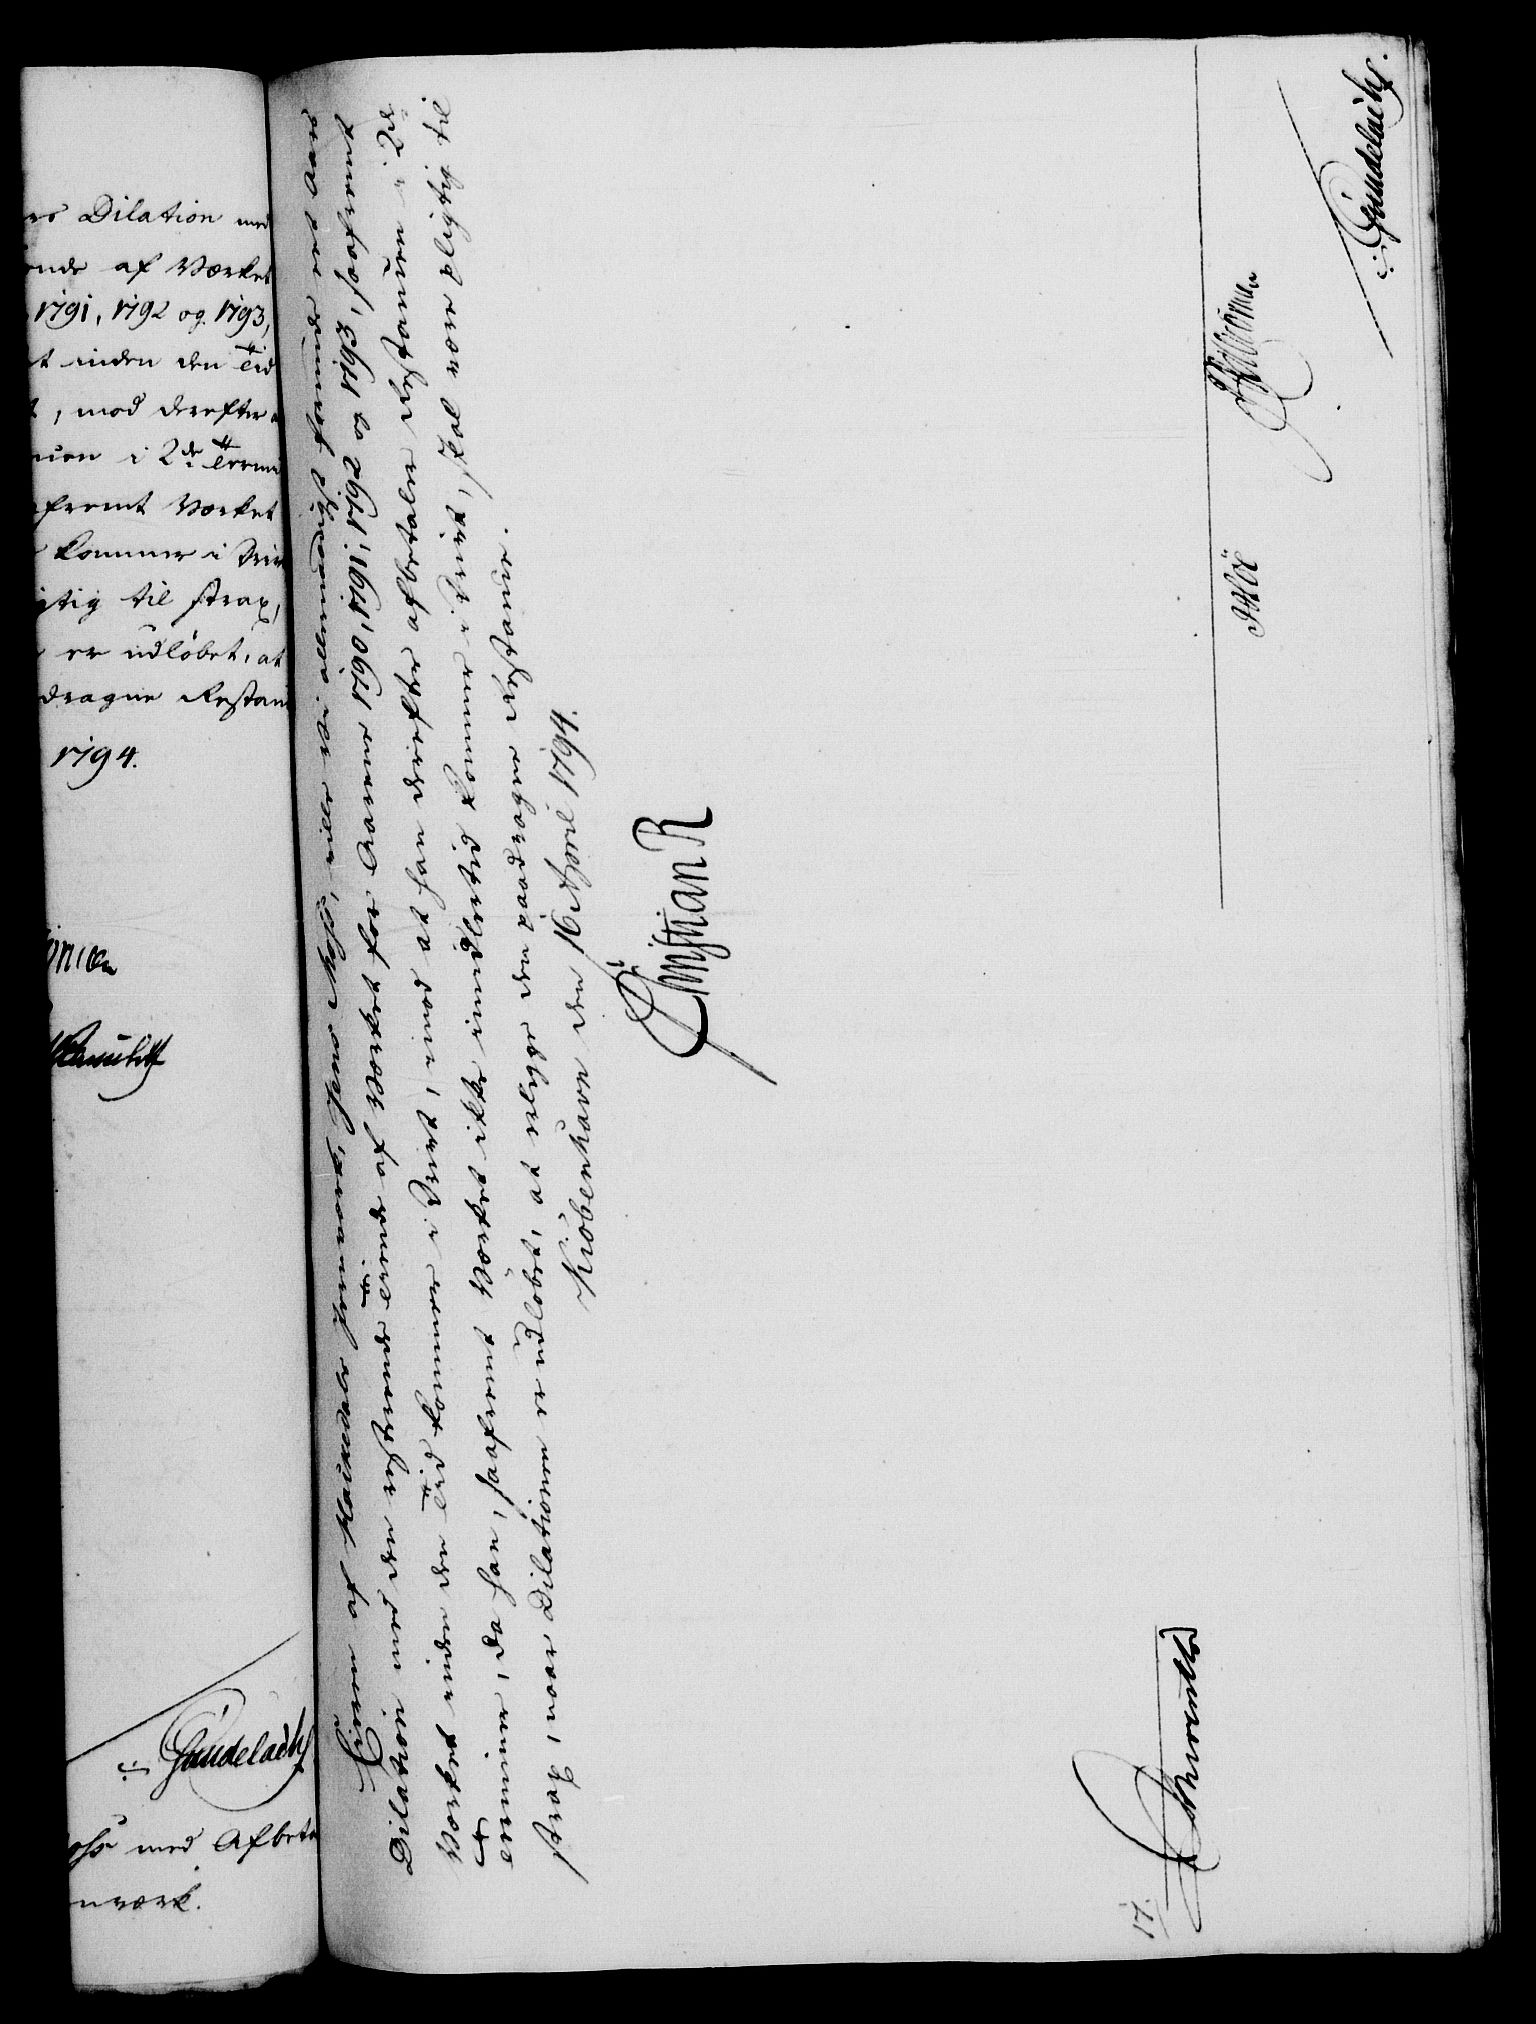 ers Dilation med
ende af Værket
1791, 1792 og 1793,
t inden den Tid
t, mod derefter
uen i 2de Termi
afremt Værket
kommer i Driv
igtig til strax,
er udløbet, at
dragne Restan
1794.
Gundelach
med Afbeta
nværk.
Eieren af Jernværk, Jens Moss, ville vi allernaadigst forunde eet Aars
Dilation med den resterende Tiende af Værket for Aarene 1790, 1791, 1792 og 1793, saafremt
Værket inden den Tid kommer i Drivt, imod at han derefter afbetaler Restancen i 2de
Terminer, da han, saafremt Værket ikke imidlertid kommer i Drivt, skal være pligtig til
strax, naar Dilationen er udløbet, at erlægge den paadragne Restance.
Kiøbenhavn den 16 April 1794.
Christian R
17.
Gundelach